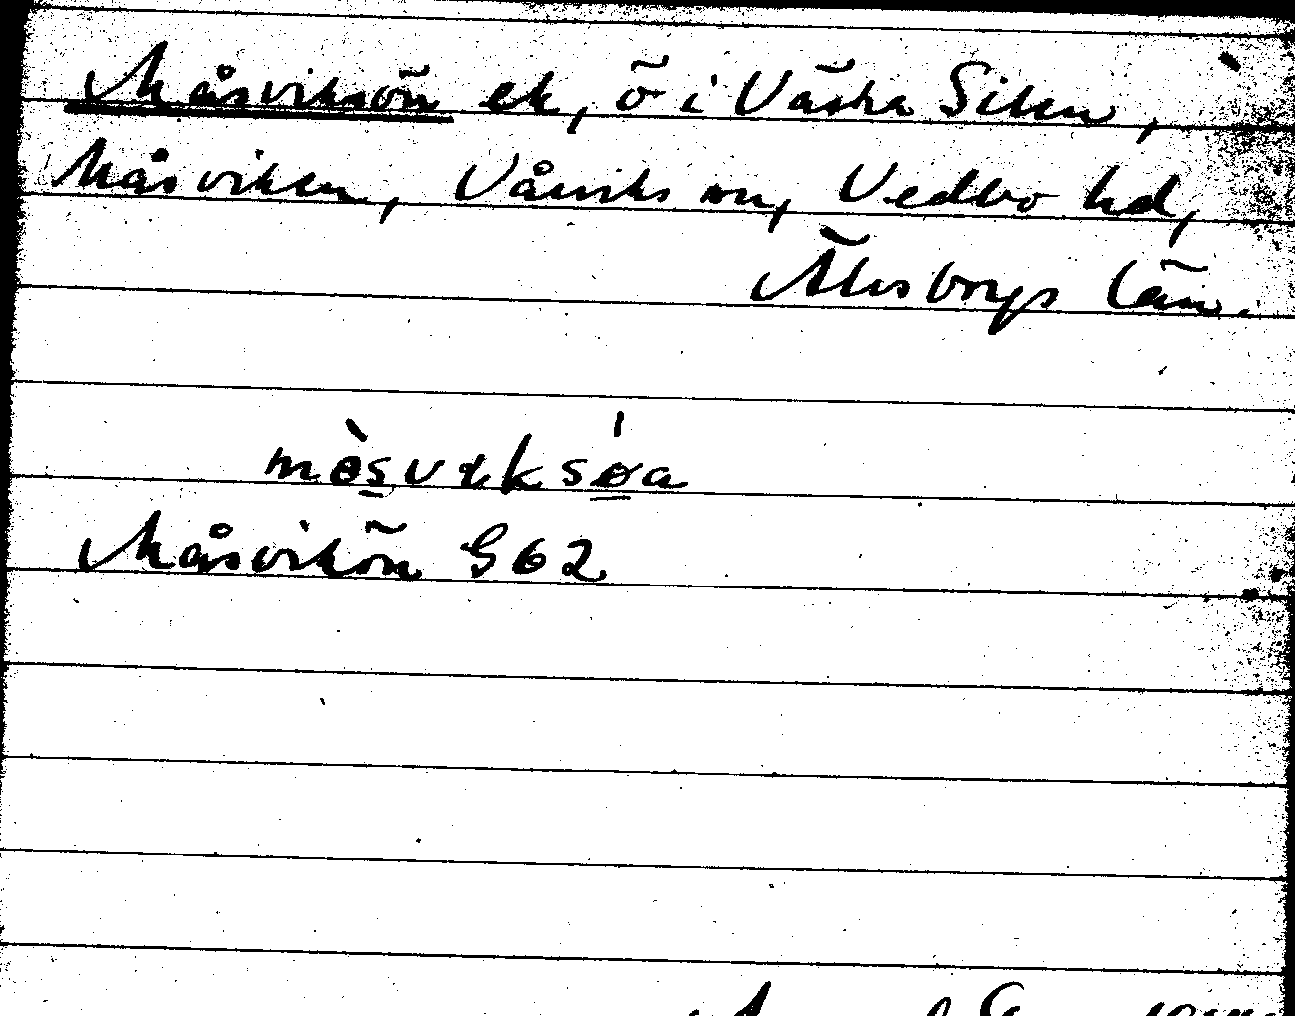 Måsviksön ek, ö i Västra Silen,
Måsviken, Vårviks sn, Vedbo hd,
Älvsborgs län.
mòsvıksǿa
Måsvikön G62